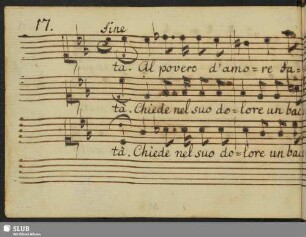 17.
fine
tà. Al povero d'amo=re fa=
tà. Chiede nel suo do=lore un bac
tà. Chiede nel suo do=lore un bac
SLUB